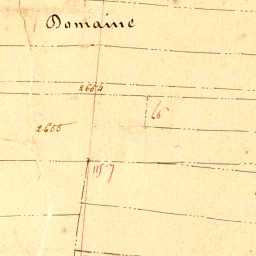 Domaine
2654
66
2655
1157